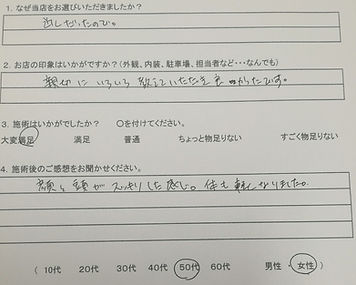 1. なぜ当店をお選びいただきましたか？
だったので。
2. お店の印象はいかがですか？（外観、内装、駐車場、担当者など・・・なんでも）
親切にいろいろ教えていただき良かったです。
3. 施術はいかがでしたか？　〇を付けてください。
大変満足　満足　普通　ちょっと物足りない　すごく物足りない
4. 施術後のご感想をお聞かせください。
顔と頭がスッキリした感じ。体も軽くなりました。
（ 10代　20代　30代　40代　50代　60代　男性・女性）